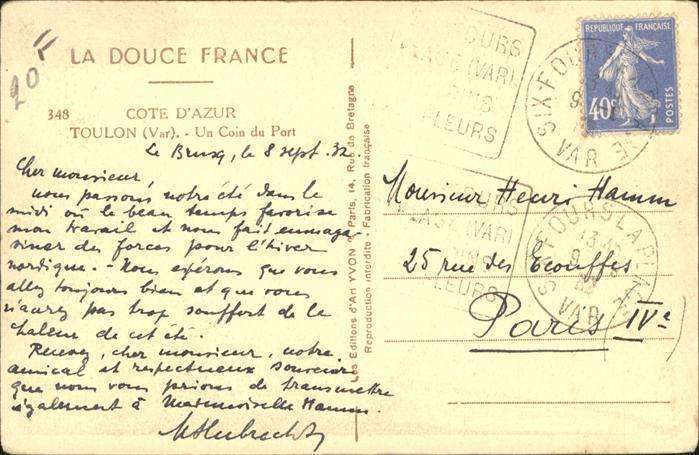 20 F
LA DOUCE FRANCE
348 COTE D'AZUR
TOULON (Var). - Un Coin du Port
Le Brusq, le 8 sept. 32
Cher monsieur,
nous passons notre été dans le
midi où le beau temps favorise
mon travail et nous fait emmaga-
siner des forces pour l'hiver
nordique. Nous espérons que vous
allez toujours bien et que vous
n'aurez pas trop souffert de la
chaleur de cet été.
Recevez, cher monsieur, notre
amical et respectueux souvenir
que nous vous prions de transmettre
également à Mademoiselle Hamm.
Les Editions d'Art YVON, Paris, 14, Rue de Bretagne
Reproduction interdite - Fabrication française
FOURS
PLAGE (VAR)
FLEURS
REPUBLIQUE FRANÇAISE
40c
POSTES
SIX-FOURS
VAR
Monsieur Henri Hamm
FOURS
PLAGE (VAR)
FLEURS
SIX-FOURS-LA-PLAGE
VAR
25 rue des Ecouffes
Paris IVe